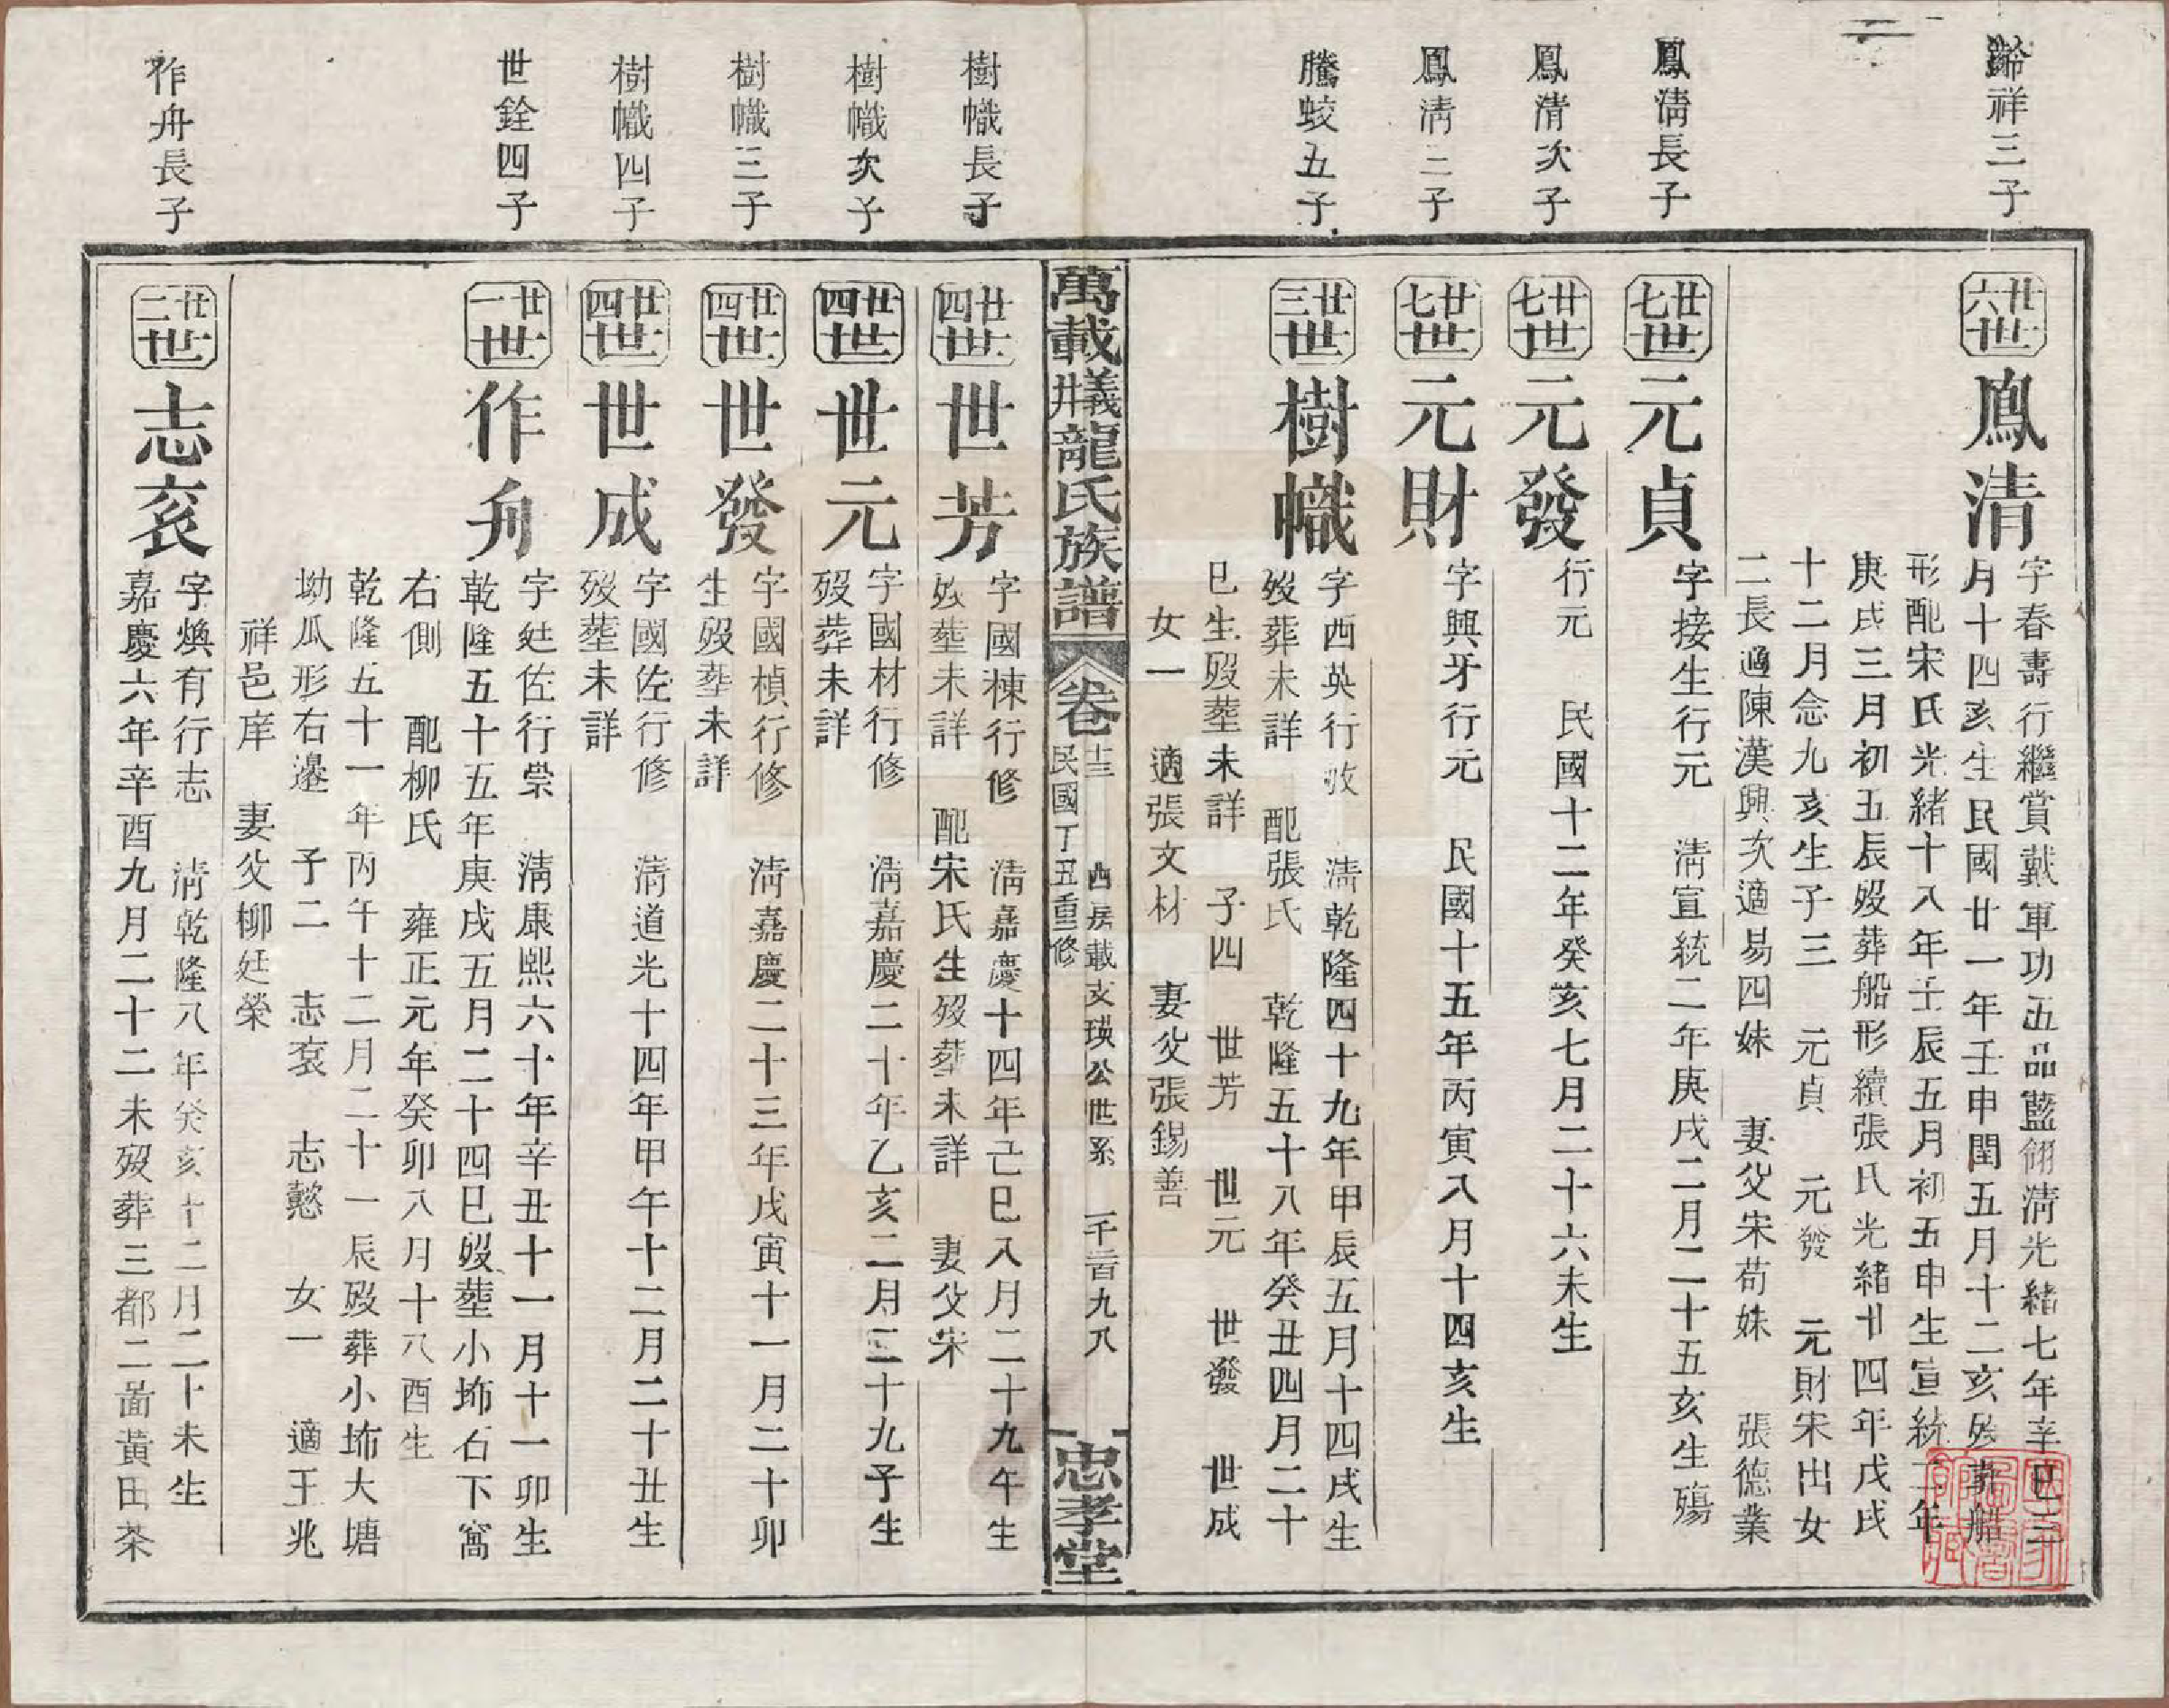 齡祥三子
廿六世
鳳清
字春壽行繼賞戴軍功五品藍翎清光緒七年辛巳三
月十四亥生民國廿一年壬申閏五月十二亥歿葬船
形配宋氏光緒十八年壬辰五月初五申生宣統二年
庚戌三月初五辰歿葬船形續張氏光緒廿四年戊戌
十二月念九亥生子三 元貞 元發 元財宋出女
二長適陳漢興次適易四妹 妻父宋苟妹 張德業
鳳清長子
廿七世
元貞
字接生行元 清宣統二年庚戌二月二十五亥生殤
鳳清次子
廿七世
元發
行元 民國十二年癸亥七月二十六未生
鳳清三子
廿七世
元財
字興牙行元 民國十五年丙寅八月十四亥生
騰蛟五子
廿三世
樹幟
字西英行攸 清乾隆四十九年甲辰五月十四戌生
歿葬未詳 配張氏 乾隆五十八年癸丑四月二十
巳生歿塟未詳 子四 世芳 世元 世發 世成
女一 適張文材 妻父張錫善
萬載井義龍氏族譜
卷十三
民國丁丑重修
西房載文瑛公世系 一千一百九八
忠孝堂
樹幟長子
廿四世
世芳
字國棟行修 清嘉慶十四年己巳八月二十九午生
歿塟未詳 配宋氏生歿葬未詳 妻父宋
樹幟次子
廿四世
世元
字國材行修 清嘉慶二十年乙亥二月二十九子生
歿葬未詳
樹幟三子
廿四世
世發
字國楨行修 清嘉慶二十三年戊寅十一月二十卯
生歿塟未詳
樹幟四子
廿四世
世成
字國佐行修 清道光十四年甲午十二月二十丑生
歿塟未詳
世銓四子
廿一世
作舟
字廷佐行崇 清康熙六十年辛丑十一月十一卯生
乾隆五十五年庚戌五月二十四巳歿塟小㘵石下窩
右側 配柳氏 雍正元年癸卯八月十八酉生
乾隆五十一年丙午十二月二十一辰歿葬小㘵大塘
坳瓜形右邊 子二 志袞 志懿 女一 適王兆
祥邑庠 妻父柳廷榮
作舟長子
廿二世
志袞
字煥有行志 清乾隆八年癸亥十二月二十未生
嘉慶六年辛酉九月二十二未歿葬三都二啚黃田茶